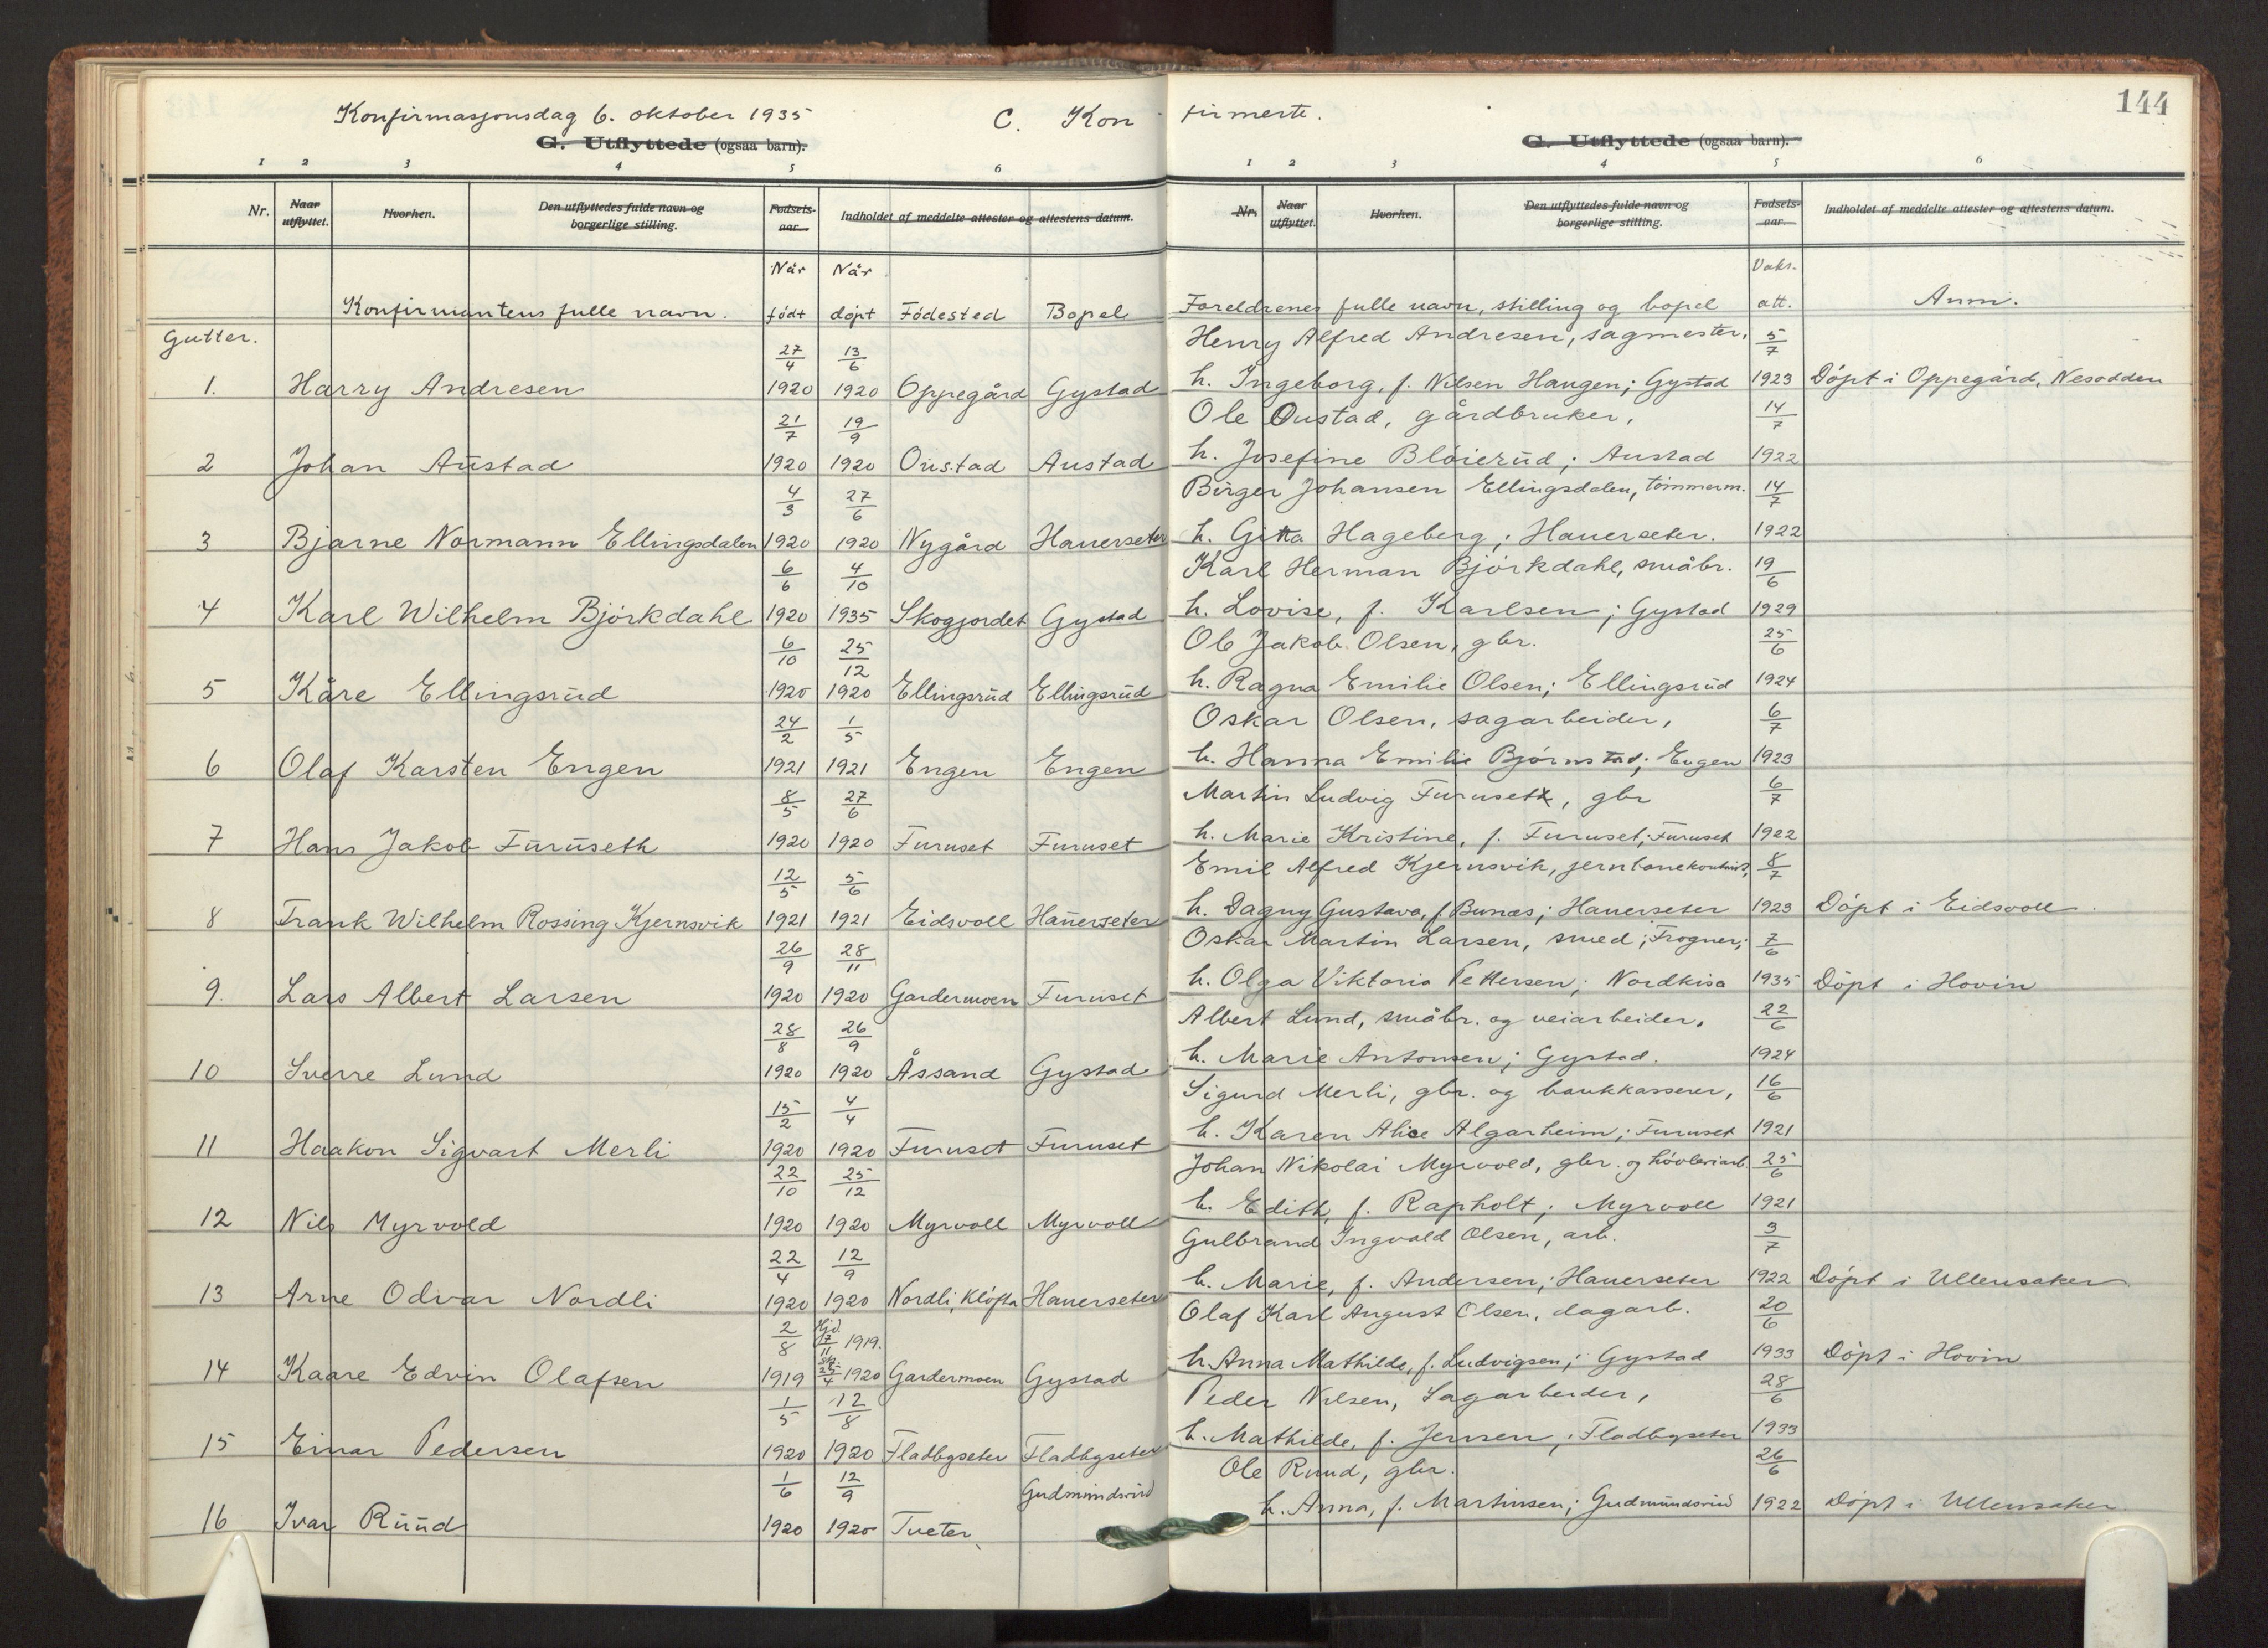 Konfirmasjonsdag 6. oktober 1935
C. Kon firmerte.
144
G. Utflyttede (ogsaa barn).
G. Utflyttede (ogsaa barn).
1 2 3 4 5 6
1 2 3 4 5 6
Nr. Naar utflyttet. Hvorhen. Den utflyttedes fulde navn og borgerlige stilling. Fødsels-aar. Indholdet af meddelte attester og attestens datum.
Nr. Naar utflyttet. Hvorhen. Den utflyttedes fulde navn og borgerlige stilling. Fødsels-aar. Indholdet af meddelte attester og attestens datum.
Når Når Vaks.
Konfirmantens fulle navn. født døpt Fødested Bopel Foreldrenes fulle navn, stilling og bopel att. Anm.
Gutter.
27/4 13/6 Henry Alfred Andresen, sagmester, 5/7
1. Harry Andresen 1920 1920 Oppegård Gystad h. Ingeborg, f. Nilsen Haugen; Gystad 1923 Döpt i Oppegård, Nesodden
21/7 19/9 Ole Oustad, gårdbruker, 14/7
2 Johan Austad 1920 1920 Oustad Austad h. Josefine Bløierud; Austad 1922
4/3 27/6 Birger Johansen Ellingsdalen, tömmerm. 14/7
3 Bjarne Normann Ellingsdalen 1920 1920 Nygård Hauerseter h. Gitta Hageberg; Hauerseter. 1922
6/6 4/10 Karl Herman Björkdahl, småbr. 19/6
4 Karl Wilhelm Björkdahl 1920 1935 Skogjordet Gystad h. Lovise, f. Karlsen; Gystad 1929
6/10 25/12 Ole Jakob Olsen, gbr. 25/6
5 Kåre Ellingsrud 1920 1920 Ellingsrud Ellingsrud h. Ragna Emilie Olsen; Ellingsrud 1924
24/2 1/5 Oskar Olsen, sagarbeider, 6/7
6 Olaf Karsten Engen 1921 1921 Engen Engen h. Hanna Emilie Bjørnstad; Engen 1923
8/5 27/6 Martin Ludvig Furuseth, gbr 6/7
7 Hans Jakob Furuseth 1920 1920 Furuset Furuset h. Marie Kristine, f. Furuset; Furuset 1922
12/5 5/6 Emil Alfred Kjernsvik, jernbanekontorist, 8/7
8 Frank Wilhelm Rossing Kjernsvik 1921 1921 Eidsvoll Hauerseter h. Dagny Gustava, f. Bunæs; Hauerseter 1923 Döpt i Eidsvoll
26/9 28/11 Oskar Martin Larsen, smed; Frogner; 7/6
9. Lars Albert Larsen 1920 1920 Gardermoen Furuset h. Olga Viktoria Pettersen; Nordkisa 1935 Döpt i Hovin
28/8 26/9 Albert Lund, småbr. og veiarbeider, 22/6
10 Sverre Lund 1920 1920 Åssand Gystad h. Marie Antonsen; Gystad. 1924
15/2 4/4 Sigurd Merli, gbr. og bankkasserer, 16/6
11 Haakon Sigvart Merli 1920 1920 Furuset Furuset h. Karen Alice Algarheim; Furuset 1921
22/10 25/12 Johan Nikolai Myrvold, gbr. og høvleriarb. 25/6
12 Nils Myrvold 1920 1920 Myrvoll Myrvoll h. Edith, f. Rapholt; Myrvoll 1921
22/4 12/9 Gulbrand Ingvald Olsen, arb. 3/7
13 Arne Odvar Nordli 1920 1920 Nordli, Kløfta Hauerseter h. Marie, f. Andersen; Hauerseter 1922 Döpt i Ullensaker
2/8 Hjd. 17/11 1919. Olaf Karl August Olsen, dagarb. 20/6
14 Kaare Edvin Olafsen 1919 stf. 25/4 1920 Gardermoen Gystad h. Anna Mathilde, f. Ludvigsen; Gystad 1933 Döpt i Hovin
1/5 12/8 Peder Nilsen, Sagarbeider, 28/6
15 Einar Pedersen 1920 1920 Fladbyseter Fladbyseter h. Mathilde, f. Jensen; Fladbyseter 1933
1/6 12/9 Gudmundsrud Ole Ruud, gbr. 26/6
16 Ivar Ruud 1920 1920 Tveter h. Anna, f. Martinsen; Gudmundsrud 1922 Döpt i Ullensaker